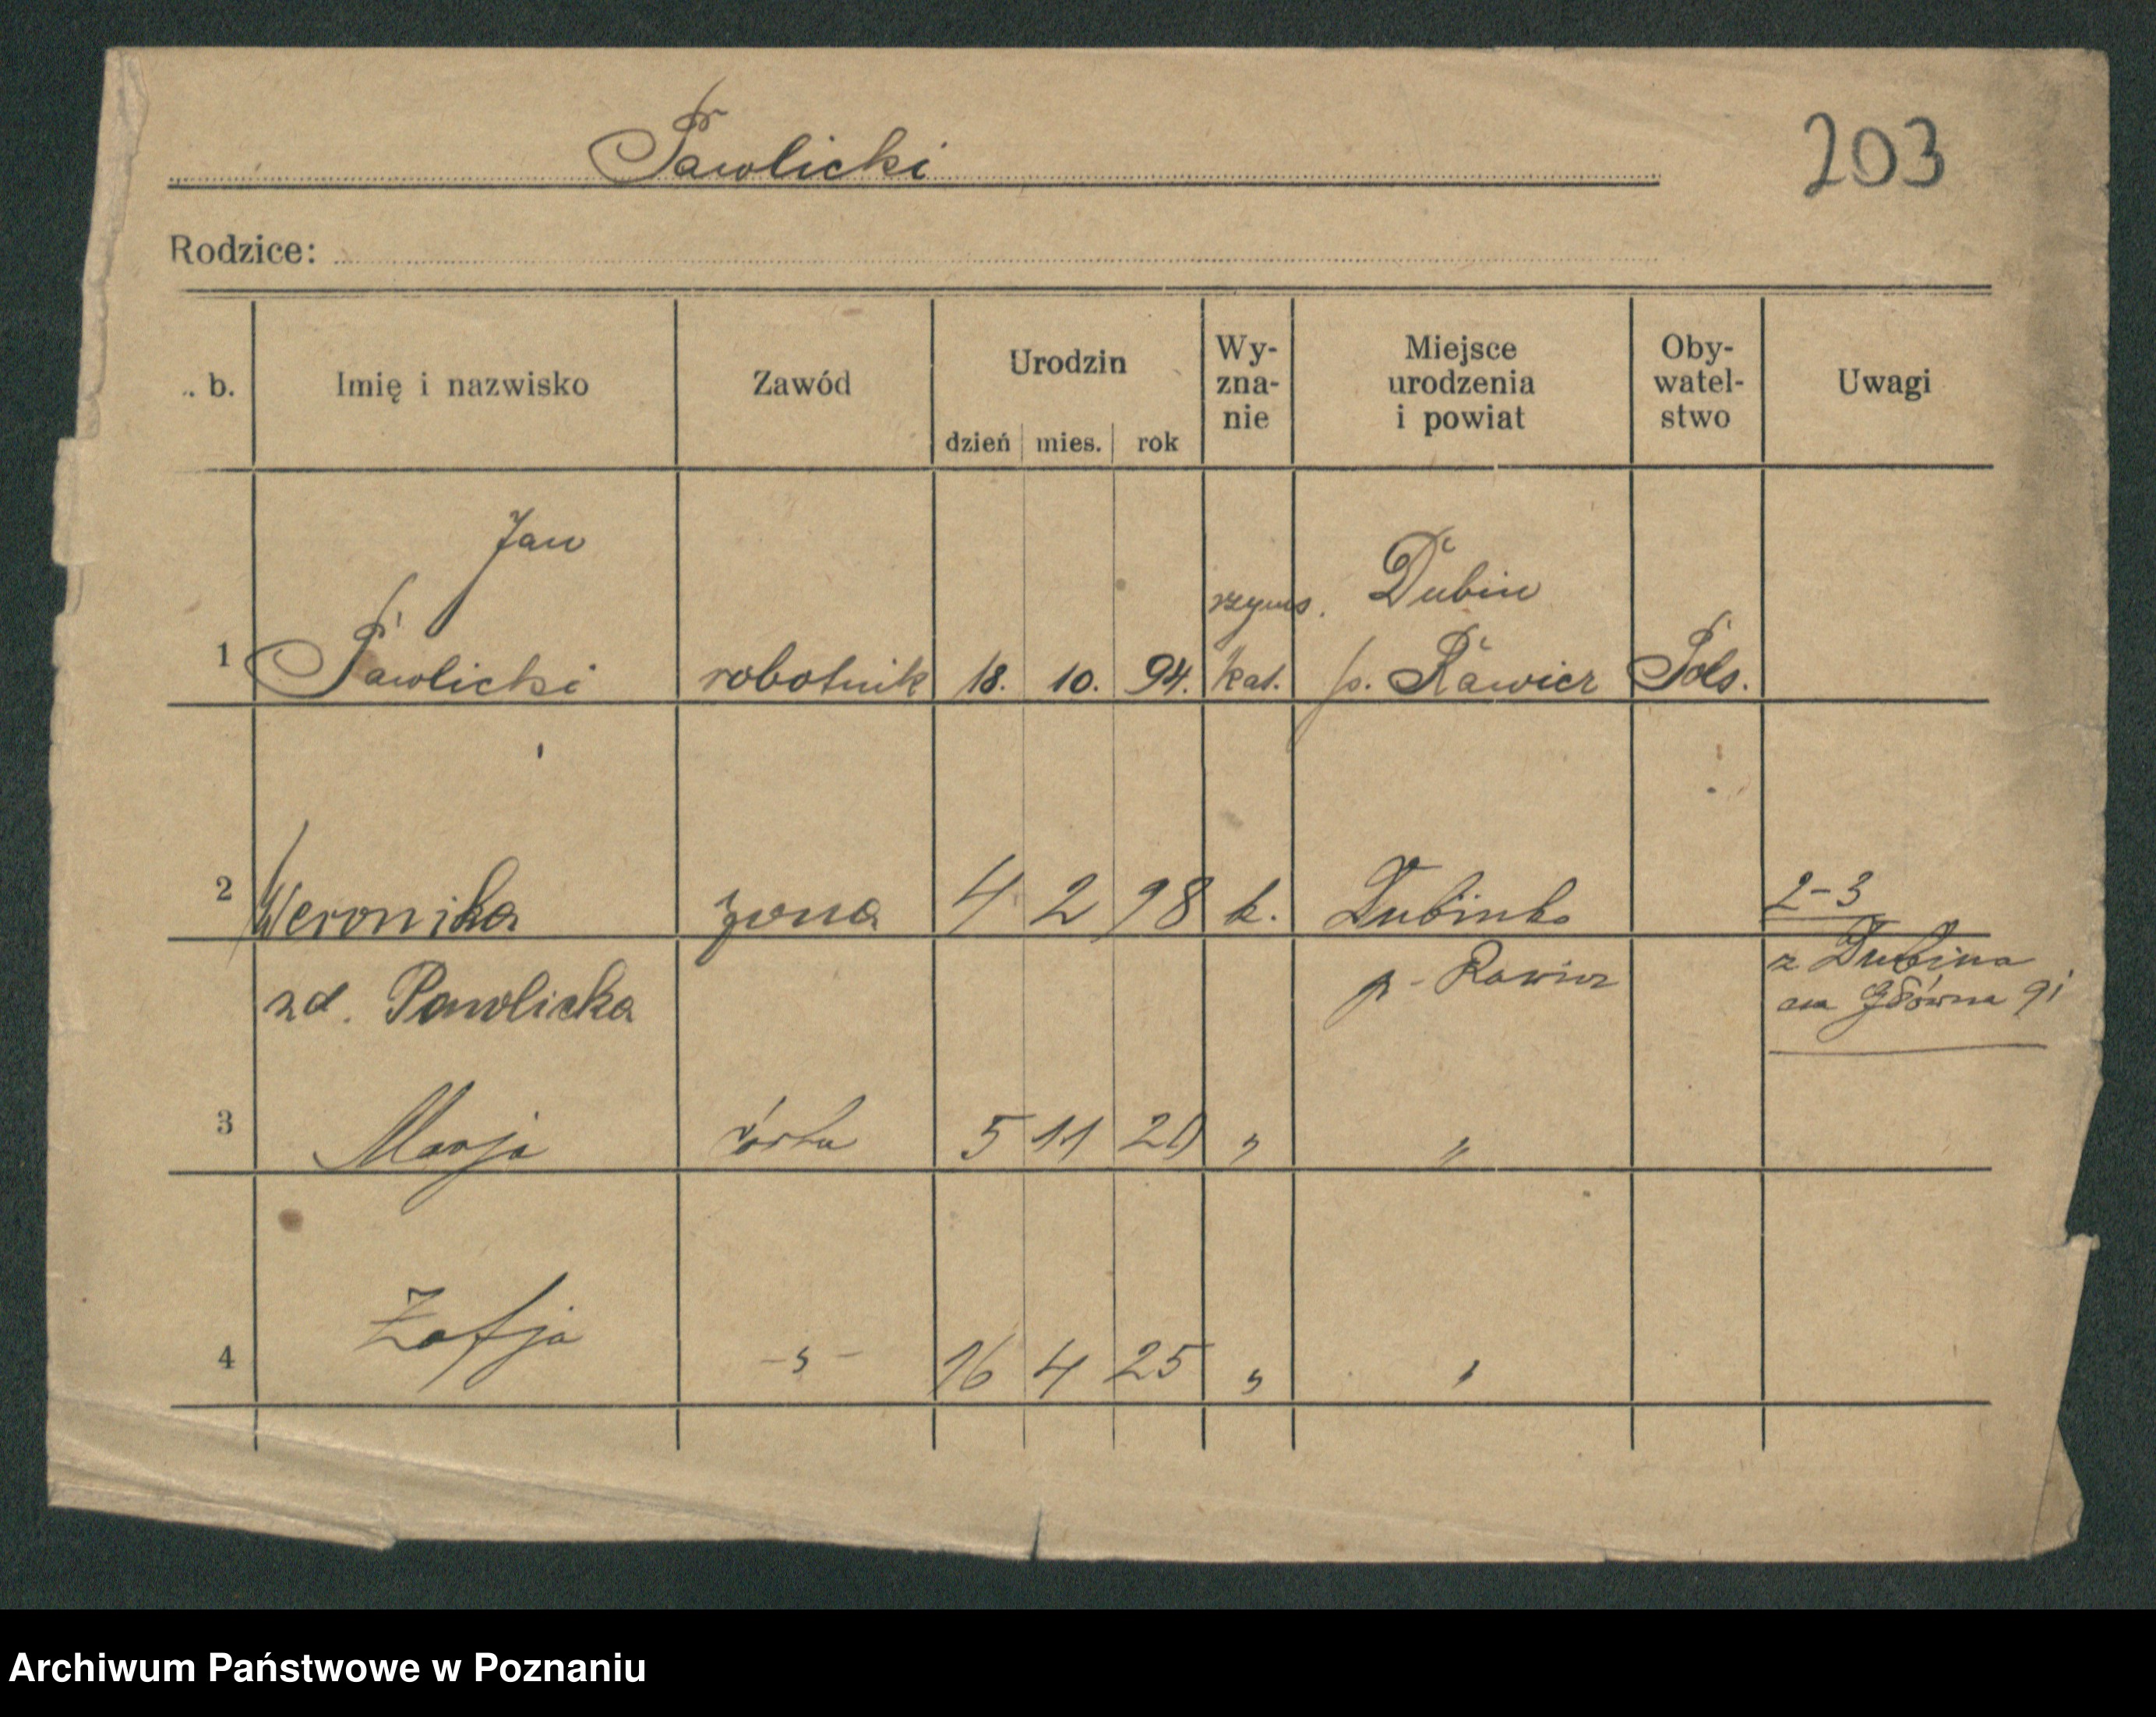 Pawlicki
203
Rodzice:
. b. Imię i nazwisko Zawód Urodzin dzień mies. rok Wy-zna-nie Miejsce urodzenia i powiat Oby-watel-stwo Uwagi
Jan
rzyms. Dubin
1 Pawlicki robotnik 18. 10. 94. kat. p. Rawicz Pols.
2 Weronika żona 4 2 98 k. Dubinko 2-3
zd. Pawlicka p - Rawicz z Dubina
na Główna 91
3 Marja córka 5 11 20 " "
4 Zofja - " - 16 4 25 " "
Archiwum Państwowe w Poznaniu